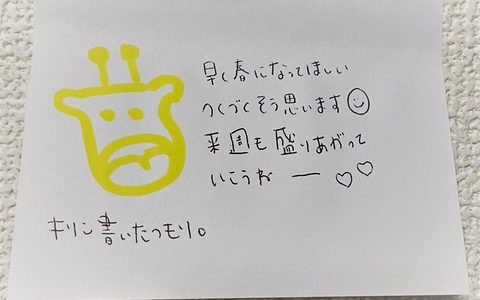 早く春になってほしい
つくづくそう思います☺
来週も盛りあがって
いこうね ー ♡♡
キリン書いたつもり。